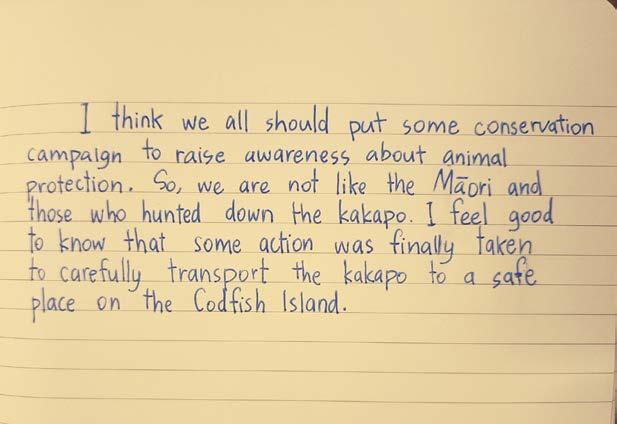 I think we all should put some conservation
campaign to raise awareness about animal
protection. So, we are not like the Māori and
those who hunted down the kakapo. I feel good
to know that some action was finally taken
to carefully transport the kakapo to a safe
place on the Codfish Island.